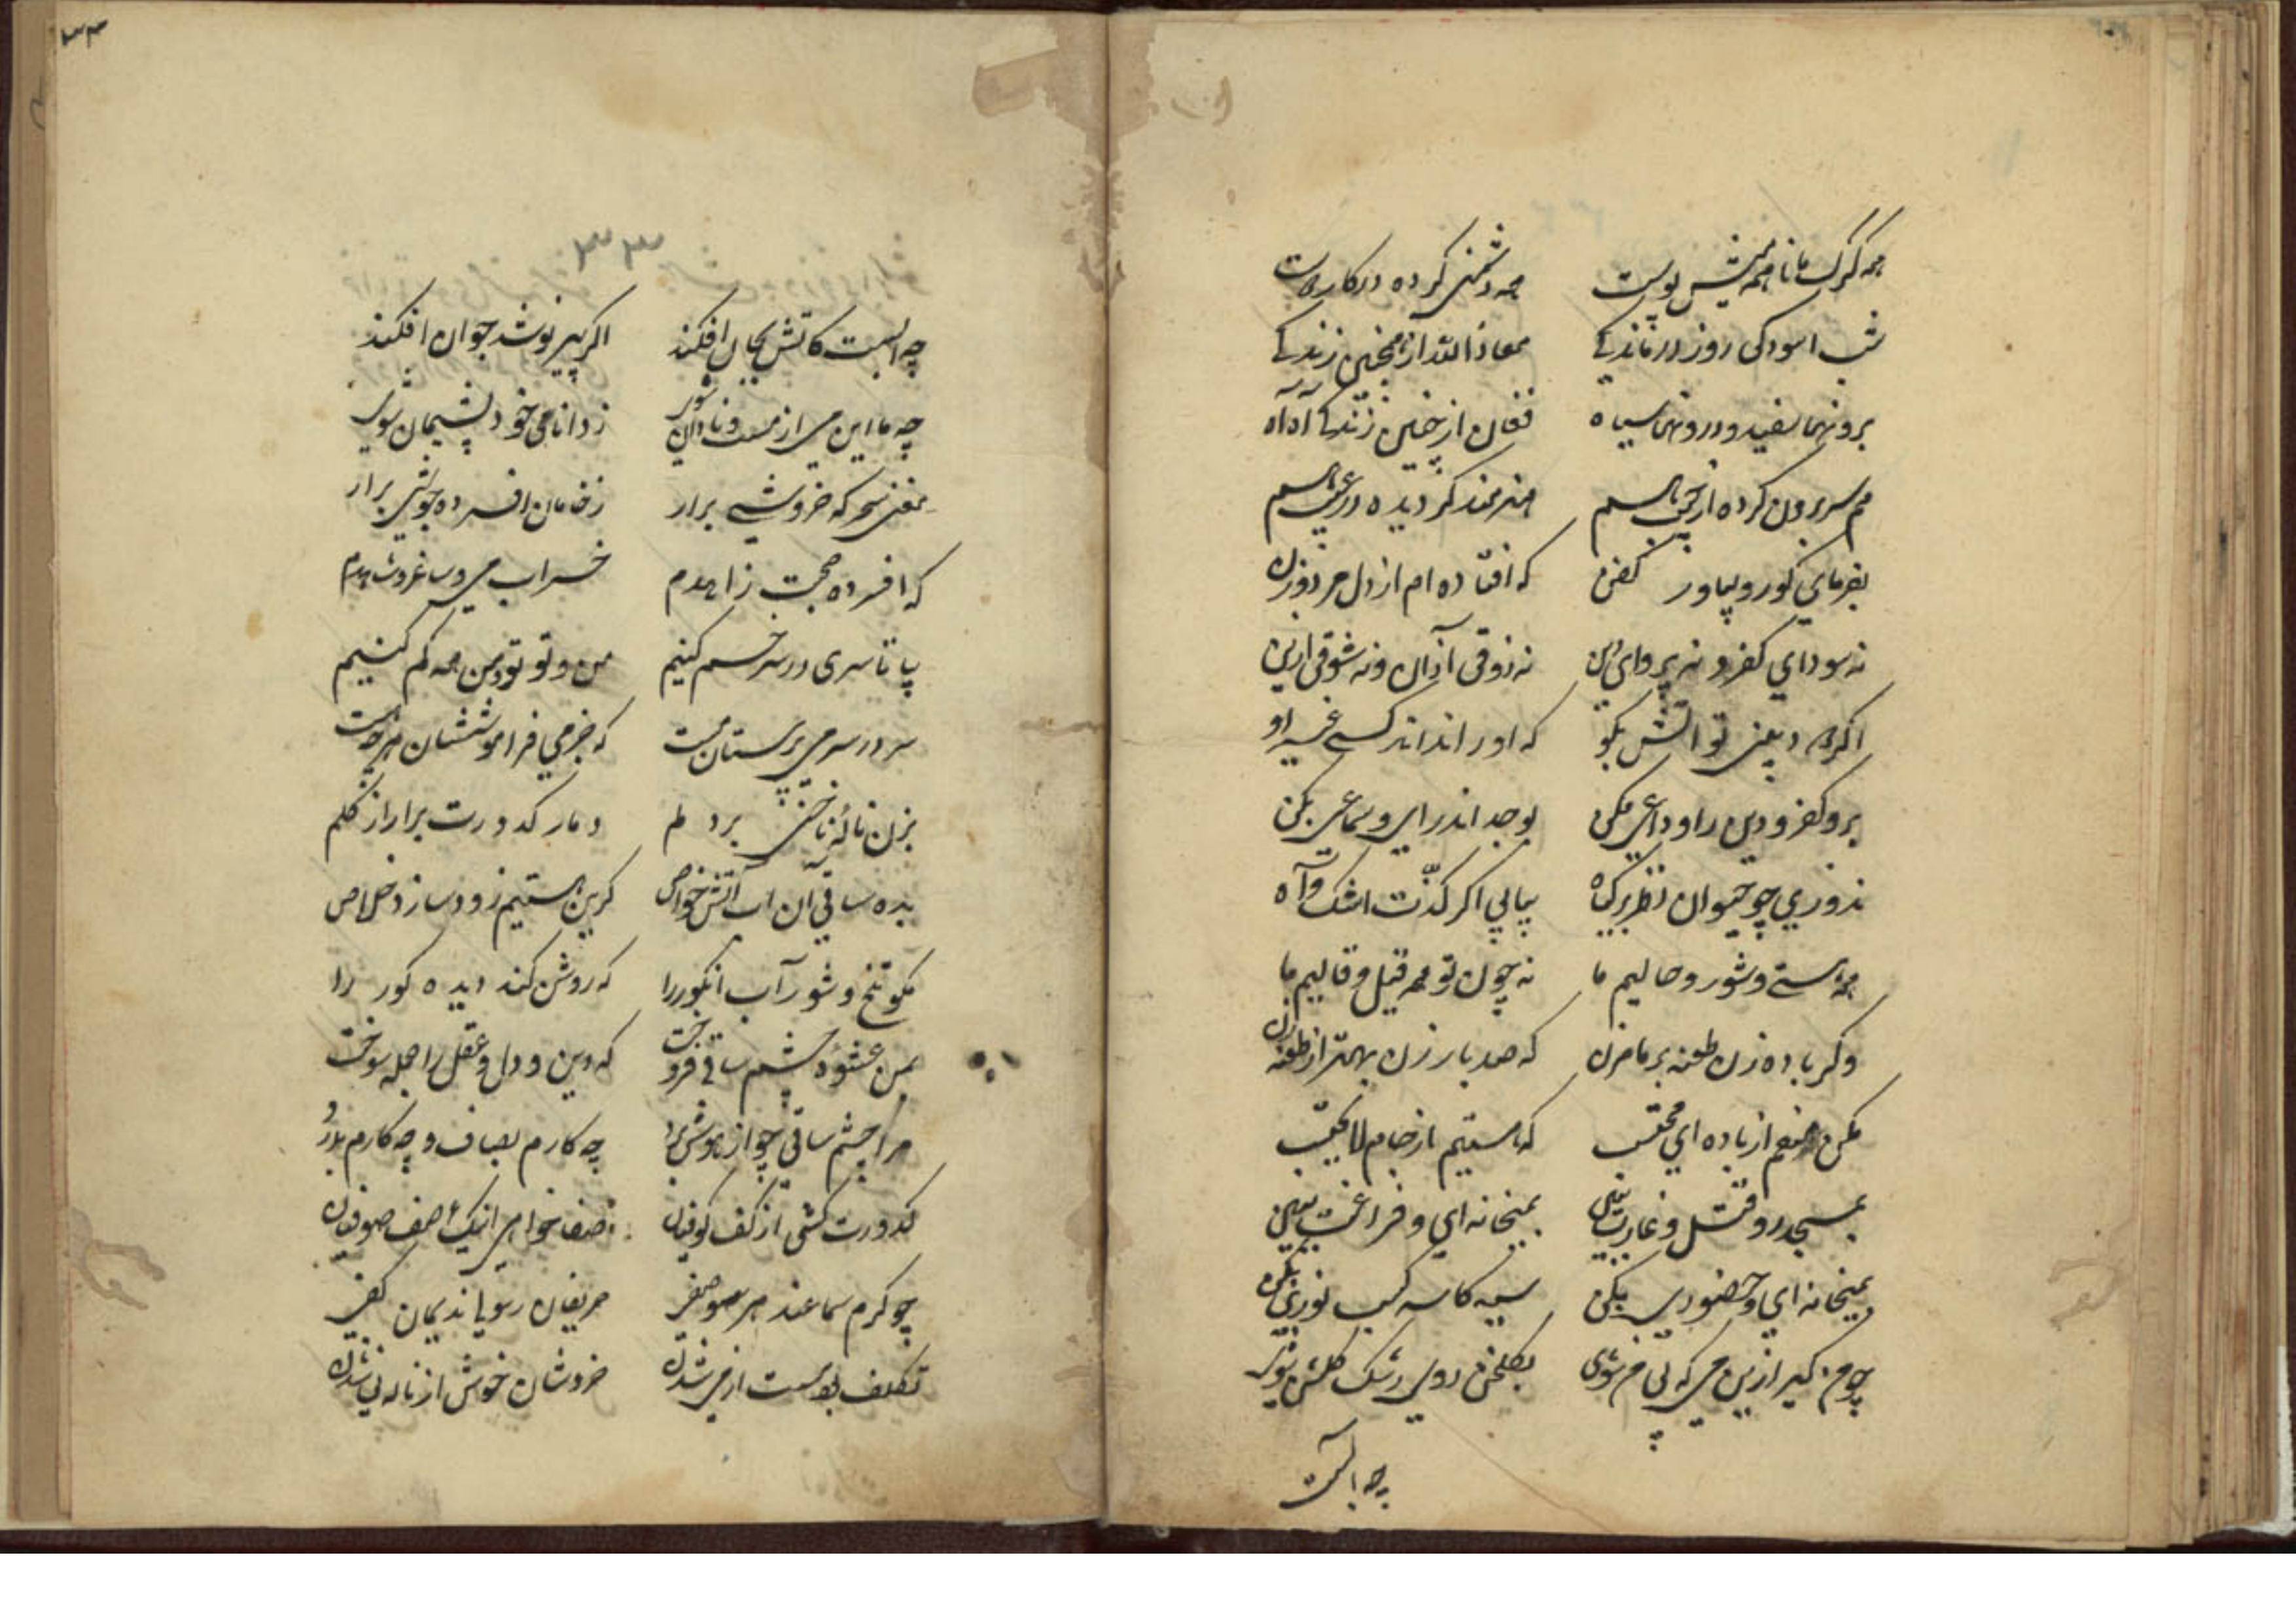 همه گرگ مانا همه میش پوست    همه دشمنی کرده در کار دوست
شب اسودکی روز درماندکے    معاذ الله از اینچنین زندکے
برونها سفید و درونها سیاه    فغان از چنین زندکے آه آه
همه سر برون کرده از جیب هم    هنرمند کردیده در عیب هم
بفرمای کور و بیاور کفن    که افتاده ام از دل مرد و زن
نه سودای کفر و نه پروای دین    نه ذوقی از آن و نه شوقی ازین
که او را نداند کسے غیر او
برو کفر و دین را وداعی بکن    بوجد اندر ای و سماعی بکن
ندوزی چو حیوان نظر بر کیاه    بیابی اکر لذّت اشک و آه
همه مستے و شور و حالیم ما    نه چون تو همه قیل و قالیم ما
دکر باده زن طعنه بر ما مزن    که صد بار زن بهتر از طعنه زن
مکن منعم از باده ای محتسب    که مستیم از جام لا یحتسب
بمسجد رو و قتل و غارت ببین    بمیخانه ای و فراغت ببین
بمیخانه ای و حضوری بکن    سیه کاسه کسب نوری بکن
چو من کیر ازین می که بی من شوی    بکلخن روی رشک کلشن شوی
چه ابست
۳۳
چه ابست کاتش بجان افکند    اکر پیر نوشد جوان افکند
ز دانائی خود پشیمان شوی
مغنی سحر که خروشے برار    ز خامان افسرده جوشی برار
که افسرده صحبت زاهدم    خراب می و ساغر و شاهدم
بیا تا سری در سر خم کنیم    من و تو تو و من همه کم کنیم
سر در سر می پرستان مست    که جز می فراموششان هر چه هست
بزن ناخنی بر دلم    دمار کدورت برار از کلم
بده ساقی آن اب آتش خواص    کزین هستیم زود سازد خلاص
مکو تلخ و شور آب انکور را    که روشن کند دیده کور را
بمن عشوه چشم ساقی فروخت    که دین و دل و عقل را جمله سوخت
مرا چشم ساقی چو از هوش برد    چه کارم بصاف و چه کارم بدرد
کدورت کشی از کف کوفیان    صفا خواهی اینک صف صوفیان
چو کرم سماعند هر سو صفی    حریفان رسوا ندیمان کفی
تکلف بود مست از می شدن    خروشان خوش از ناله نی شدن